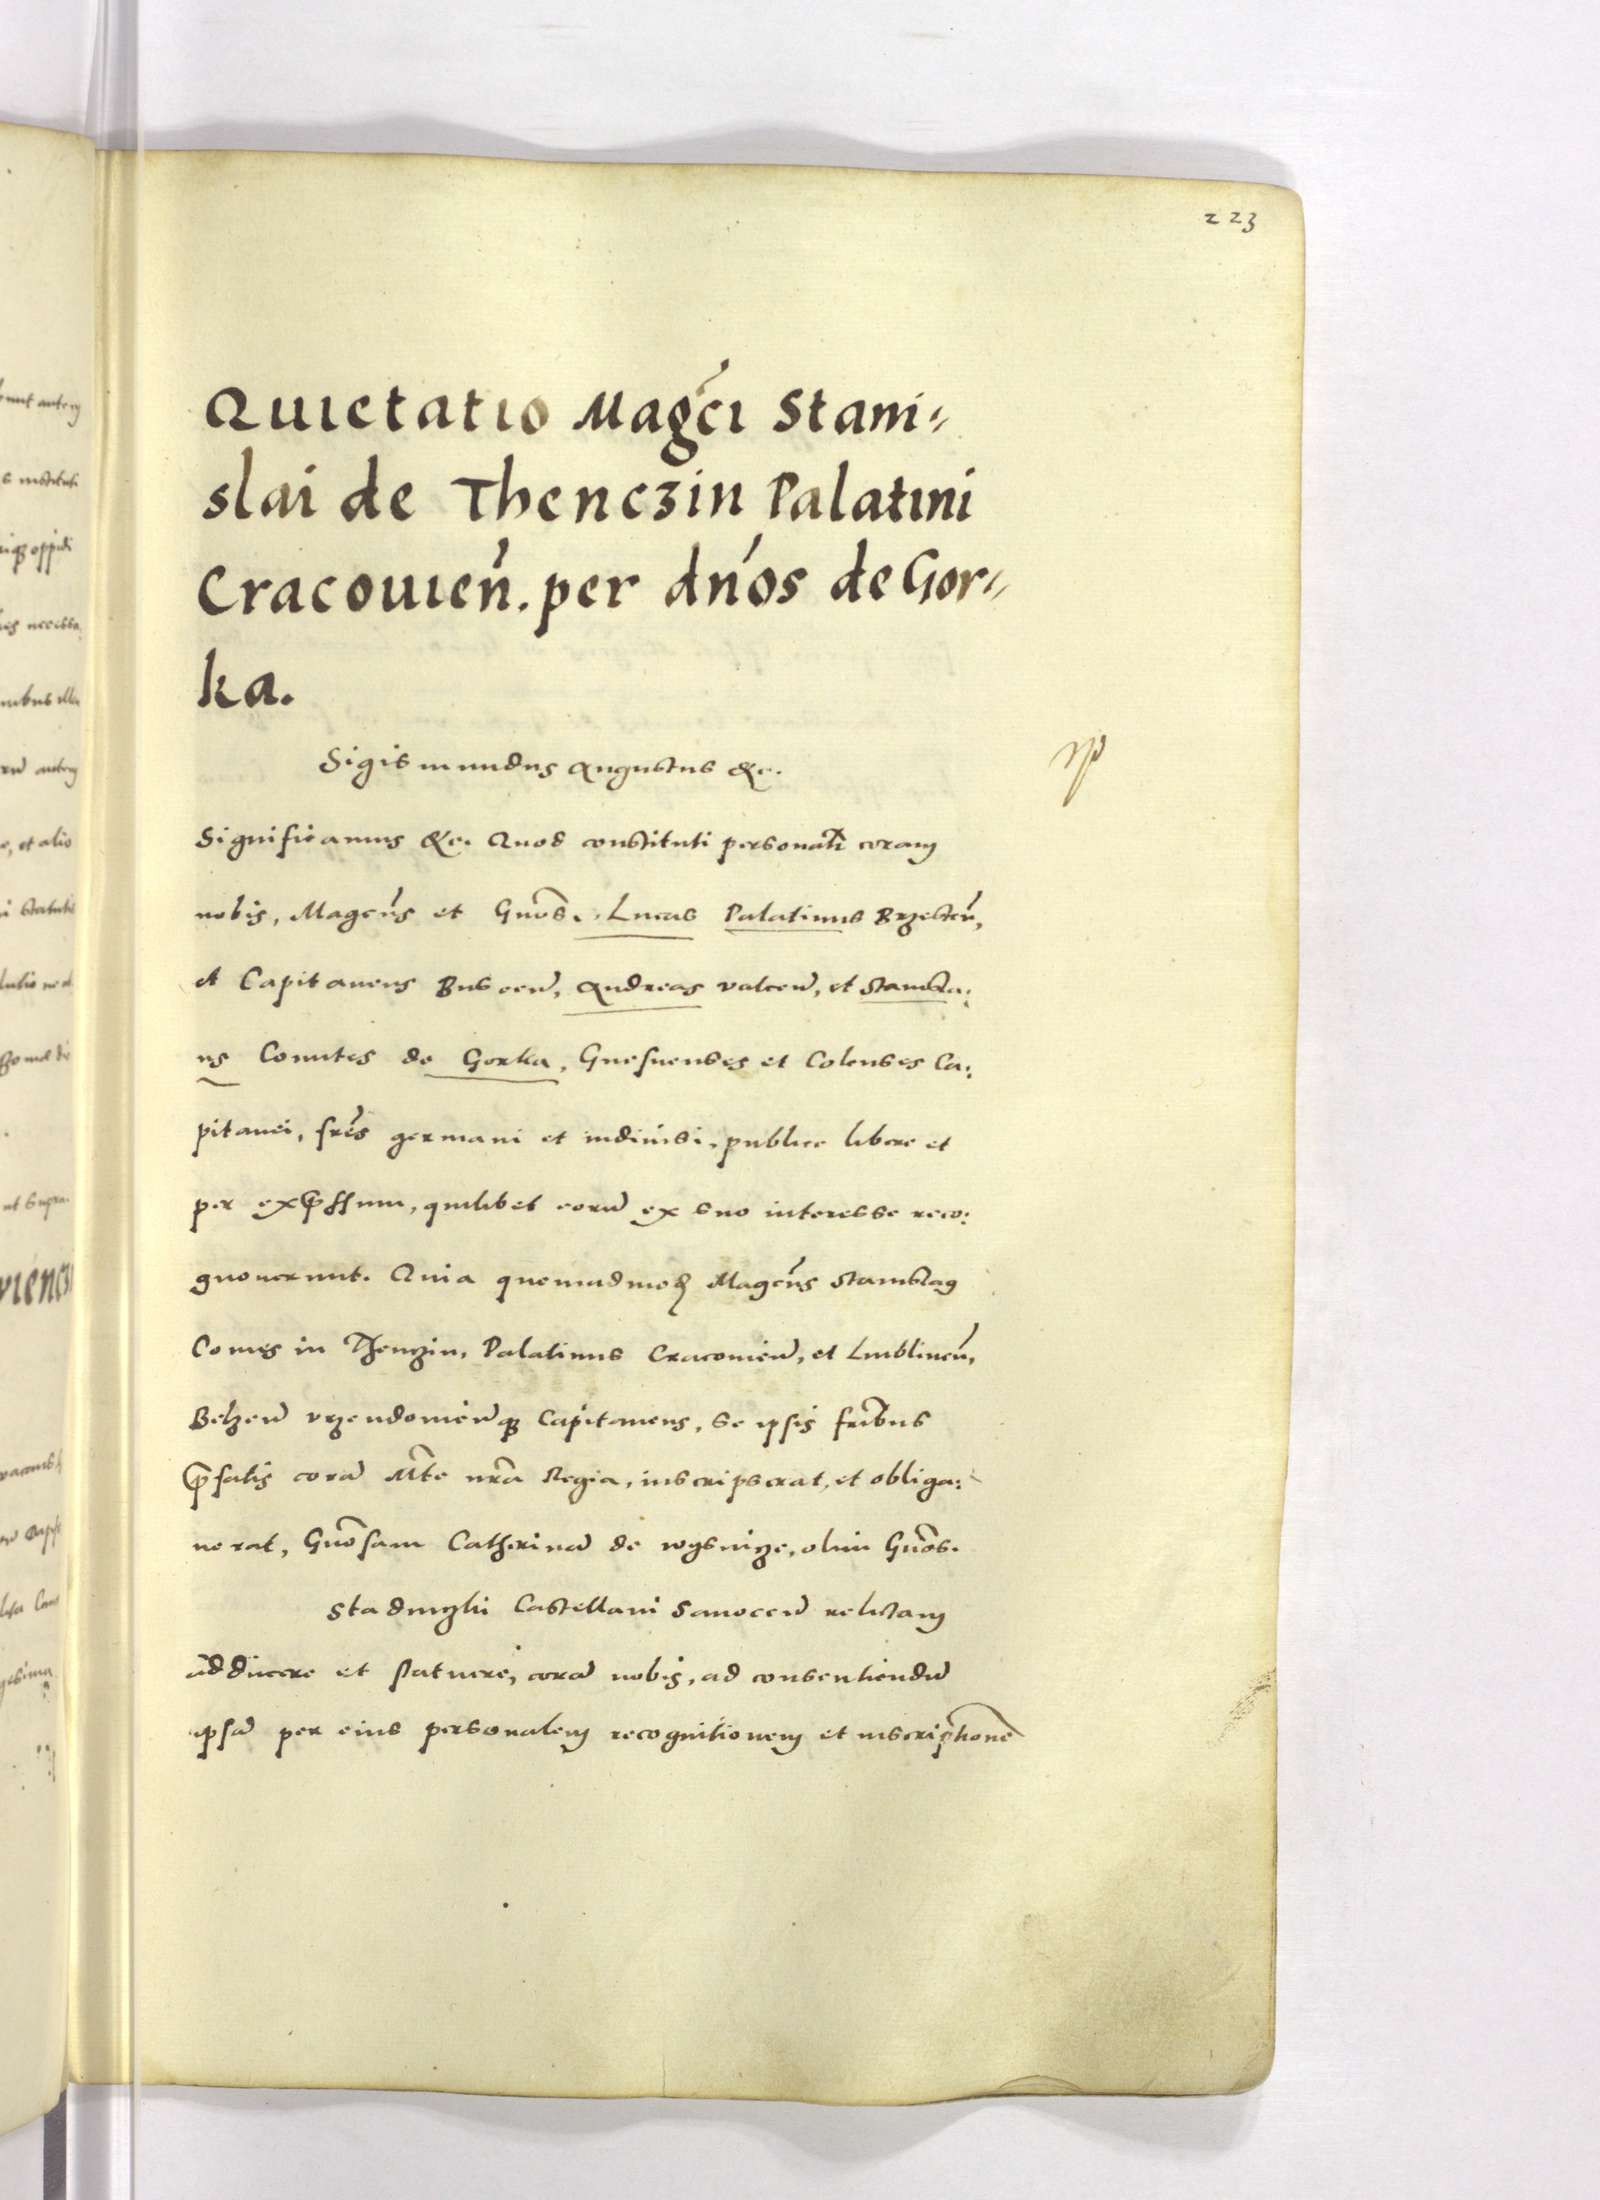 223
Quietatio Magci Stani-
slai de Thenczin Palatini
Cracouien. per dnos de Gor-
ka.
Sigismundus Augustus &c.
Significamus &c. Quod constituti personalr coram
nobis, Magcus et Gnos. Lucas Palatinus Brzesten,
et Capitaneus Buscen, Andreas valcen, et Stanisla:
us Comites de Gorka, Gnesnenses et Colenses Ca:
pitanei, fres germani et indiuisi, publice libere et
per expssum, quilibet eorum ex suo interesse reco:
gnouerunt. Quia quemadmod Magcus Stanislaus
Comes in Thenzin, Palatinus Cracouien, et Lublinen,
Belzen vrzendouienq Capitaneus, se ipsis fribus
pfatis cora Mte nra Regia, inscripserat, et obliga:
uerat, Gnosam Catherina de wysnize, olim Gnos.
Stadnizki Castellani Sanocen relictam
adducere et statuere, cora nobis, ad consentiendu
ipsa per eius personalem recognitionem et inscriptione